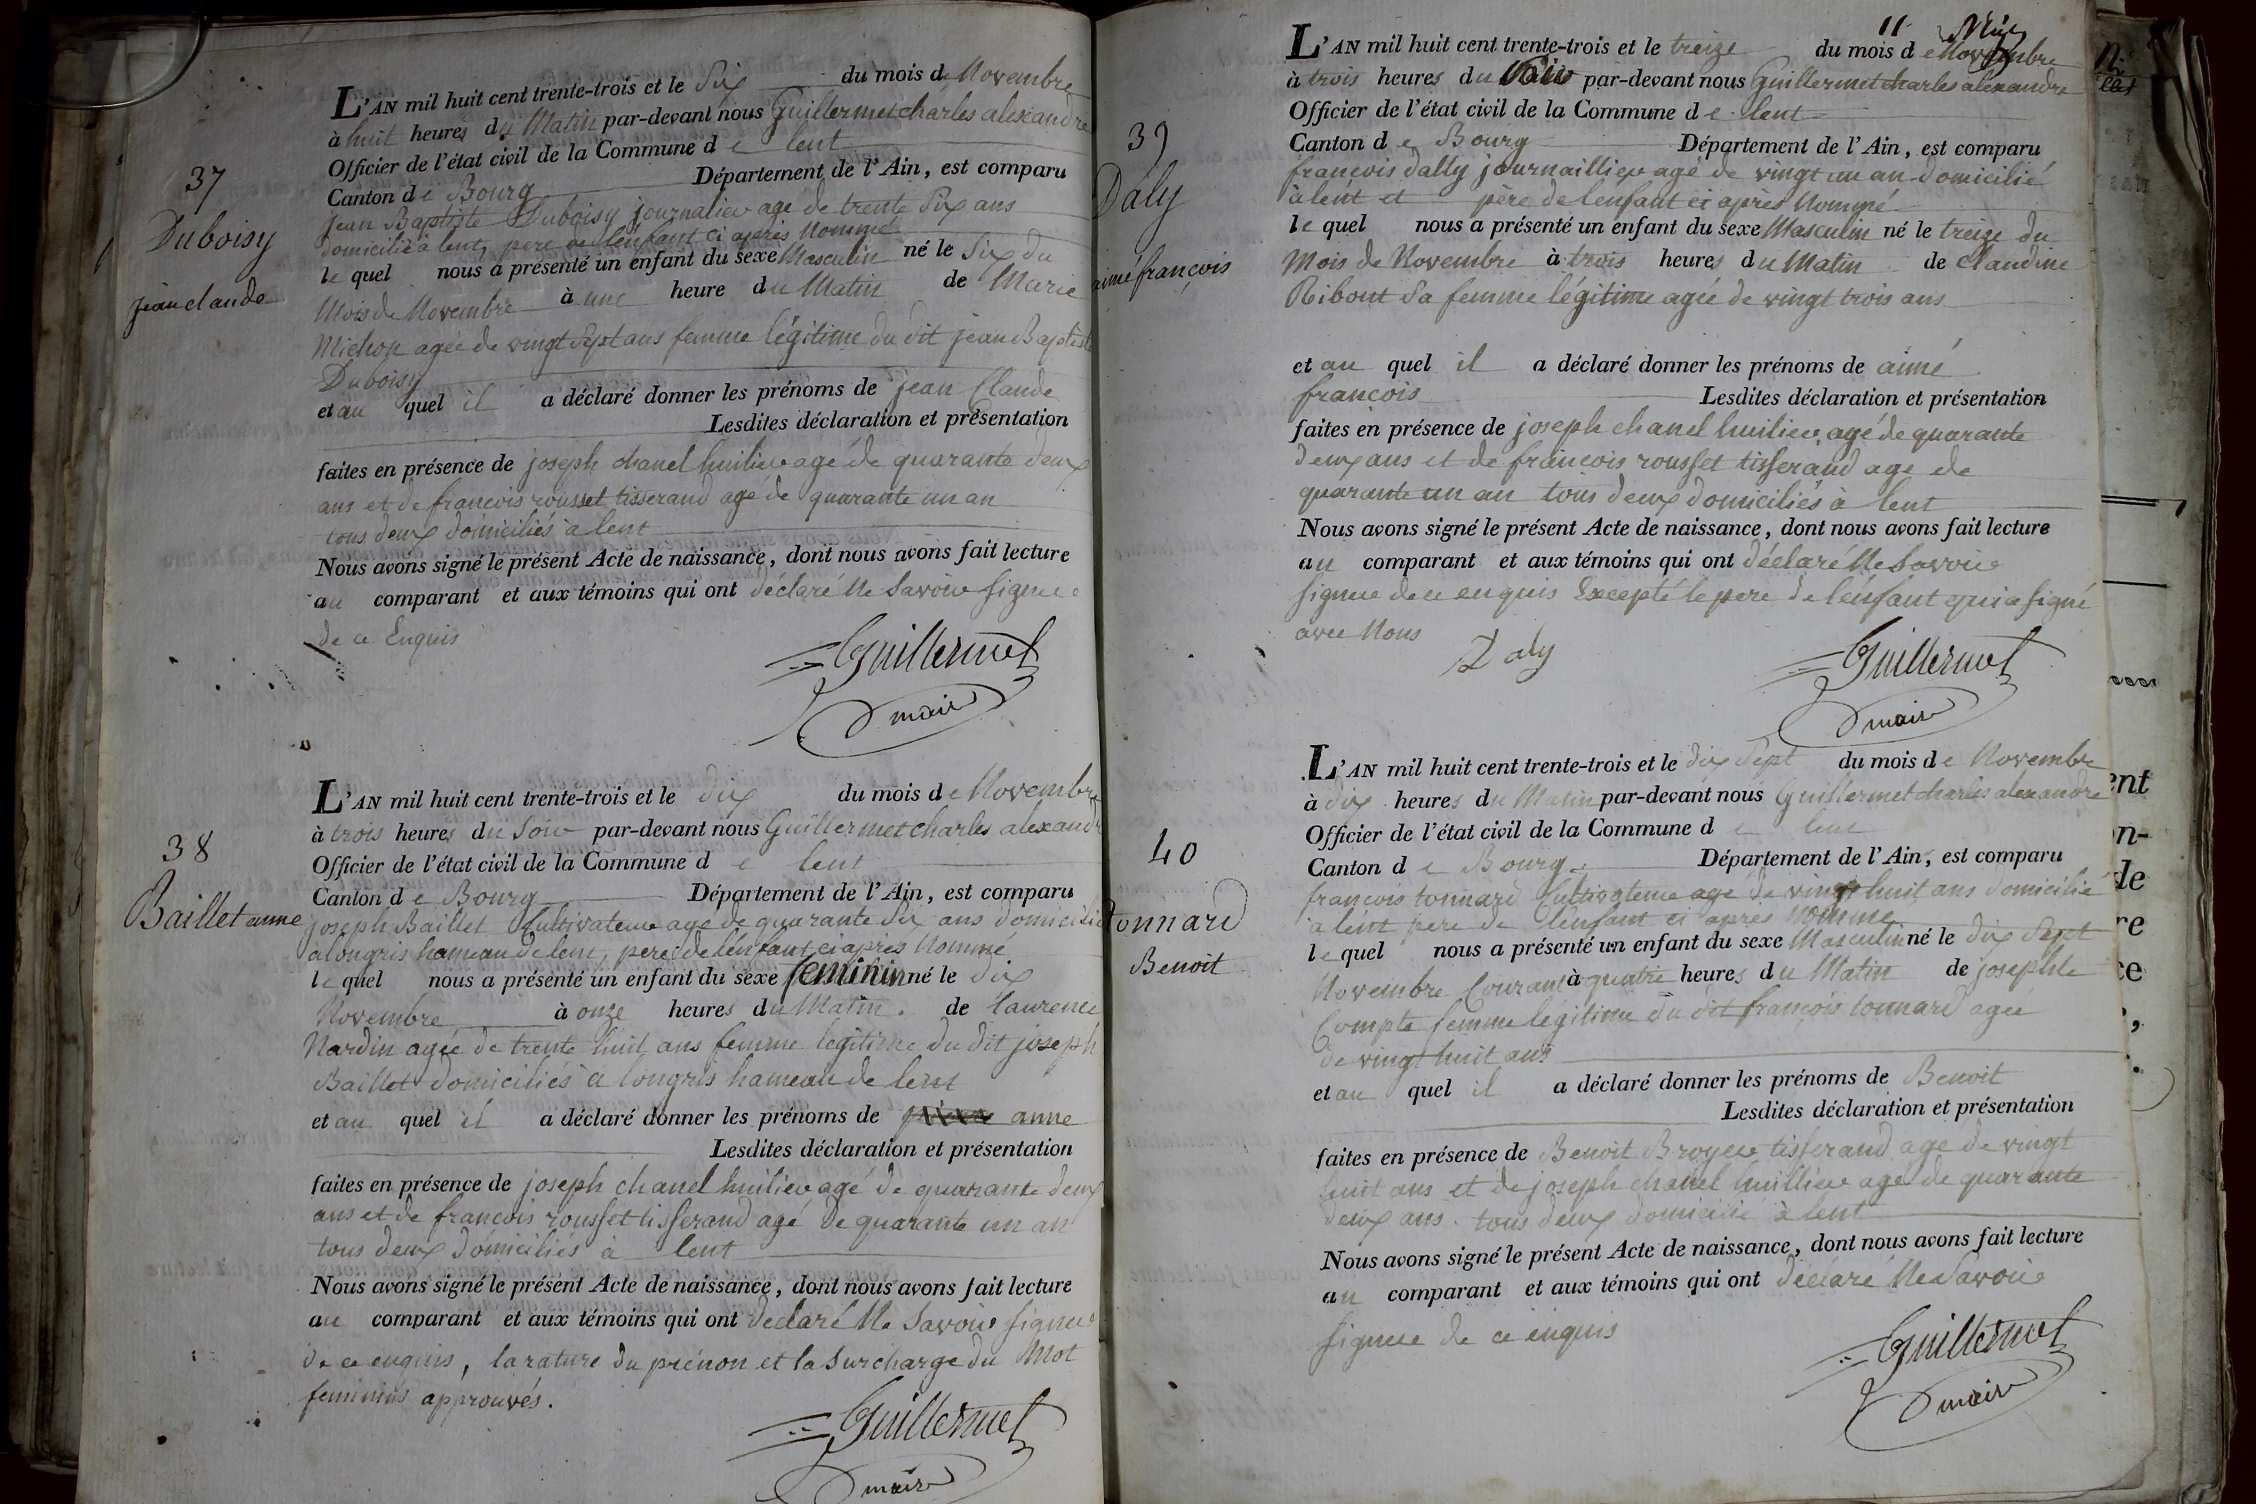 37
Duboisy
jean claude
L'AN mil huit cent trente-trois et le Six du mois de Novembre
à huit heures du Matin par-devant nous Guillermet charles alexandre
Officier de l'état civil de la Commune de lent
Canton de Bourg Département de l'Ain, est comparu
Jean Baptiste Duboisy journalier age de trente Six ans
domicilié à lent, pere de l'enfant ci après Nommé
le quel nous a présenté un enfant du sexe Masculin né le Six du
Mois de Novembre à une heure du Matin de Marie
Michon agée de vingt Sept ans femme légitime du dit jean Baptiste
Duboisy
et au quel il a déclaré donner les prénoms de jean Claude
Lesdites déclaration et présentation
faites en présence de joseph chanel huilier agé de quarante deux
ans et de francois rousset tisserand agé de quarante un an
tous deux domiciliés à lent
Nous avons signé le présent Acte de naissance, dont nous avons fait lecture
au comparant et aux témoins qui ont déclaré Ne Savoir Signer
de ce Enquis
Guillermet
maire
38
Baillet anne
L'AN mil huit cent trente-trois et le dix du mois de Novembre
à trois heures du Soir par-devant nous Guillermet charles alexandre
Officier de l'état civil de la Commune de lent
Canton de Bourg Département de l'Ain, est comparu
joseph Baillet Cultivateur age de quarante dix ans domicilié
a longris hameau de lent, pere de l'enfant ci après Nommé
le quel nous a présenté un enfant du sexe feminin né le dix
Novembre à onze heures du Matin. de laurence
Nardin agée de trente huit ans femme légitime du dit joseph
Baillet domiciliés à longris hameau de lent
et au quel il a déclaré donner les prénoms de anne
Lesdites déclaration et présentation
faites en présence de joseph chanel huilier agé de quarante deux
ans et de francois rousset tisserand agé de quarante un an
tous deux domiciliés à lent
Nous avons signé le présent Acte de naissance, dont nous avons fait lecture
au comparant et aux témoins qui ont declaré Ne Savoir Signer
de ce enquis, la rature du prénon et la Surcharge du Mot
feminins approuvés.
Guillermet
maire
11
39
Daly
aimé françois
L'AN mil huit cent trente-trois et le treize du mois de Novembre
à trois heures du Soir par-devant nous Guillermet charles alexandre
Officier de l'état civil de la Commune de lent
Canton de Bourg Département de l'Ain, est comparu
françois dally journaillier agé de vingt un an domicilié
à lent et père de l'enfant ci après Nommé
le quel nous a présenté un enfant du sexe Masculin né le treize du
Mois de Novembre à trois heures du Matin de claudine
Ribout Sa femme légitime agée de vingt trois ans
et au quel il a déclaré donner les prénoms de aimé
francois Lesdites déclaration et présentation
faites en présence de joseph chanel huilier agé de quarante
deux ans et de francois rousset tisserand age de
quarante un an tous deux domiciliés à lent
Nous avons signé le présent Acte de naissance, dont nous avons fait lecture
au comparant et aux témoins qui ont déclaré Ne Savoir
Signer de ce enquis Excepté le pere de l'enfant qui a Signé
avec Nous
Daly
Guillermet
maire
40
tonnard
Benoit
L'AN mil huit cent trente-trois et le dix Sept du mois de Novembre
à dix heures du Matin par-devant nous Guillermet charles alexandre
Officier de l'état civil de la Commune de lent
Canton de Bourg Département de l'Ain, est comparu
françois tonnard Cultivateur age de vingt huit ans domicilié
a lent pere de l'enfant ci après nommé
le quel nous a présenté un enfant du sexe Masculin né le dix Sept
Novembre Courant à quatre heures du Matin de josephte
Compte femme légitime du dit françois tonnard agée
de vingt huit ans
et au quel il a déclaré donner les prénoms de Benoit
Lesdites déclaration et présentation
faites en présence de Benoit Broyer tisserand agé de vingt
huit ans et de joseph chanel huillier agé de quarante
deux ans. tous deux domicilié à lent
Nous avons signé le présent Acte de naissance, dont nous avons fait lecture
au comparant et aux témoins qui ont déclaré Ne Savoir
Signer de ce enquis
Guillermet
maire